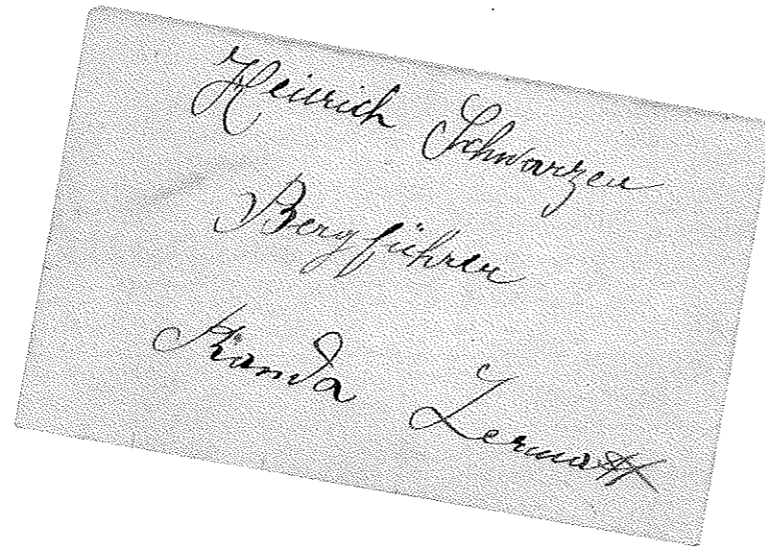 Heinrich Schwarzen
Bergführer
Randa Zermatt